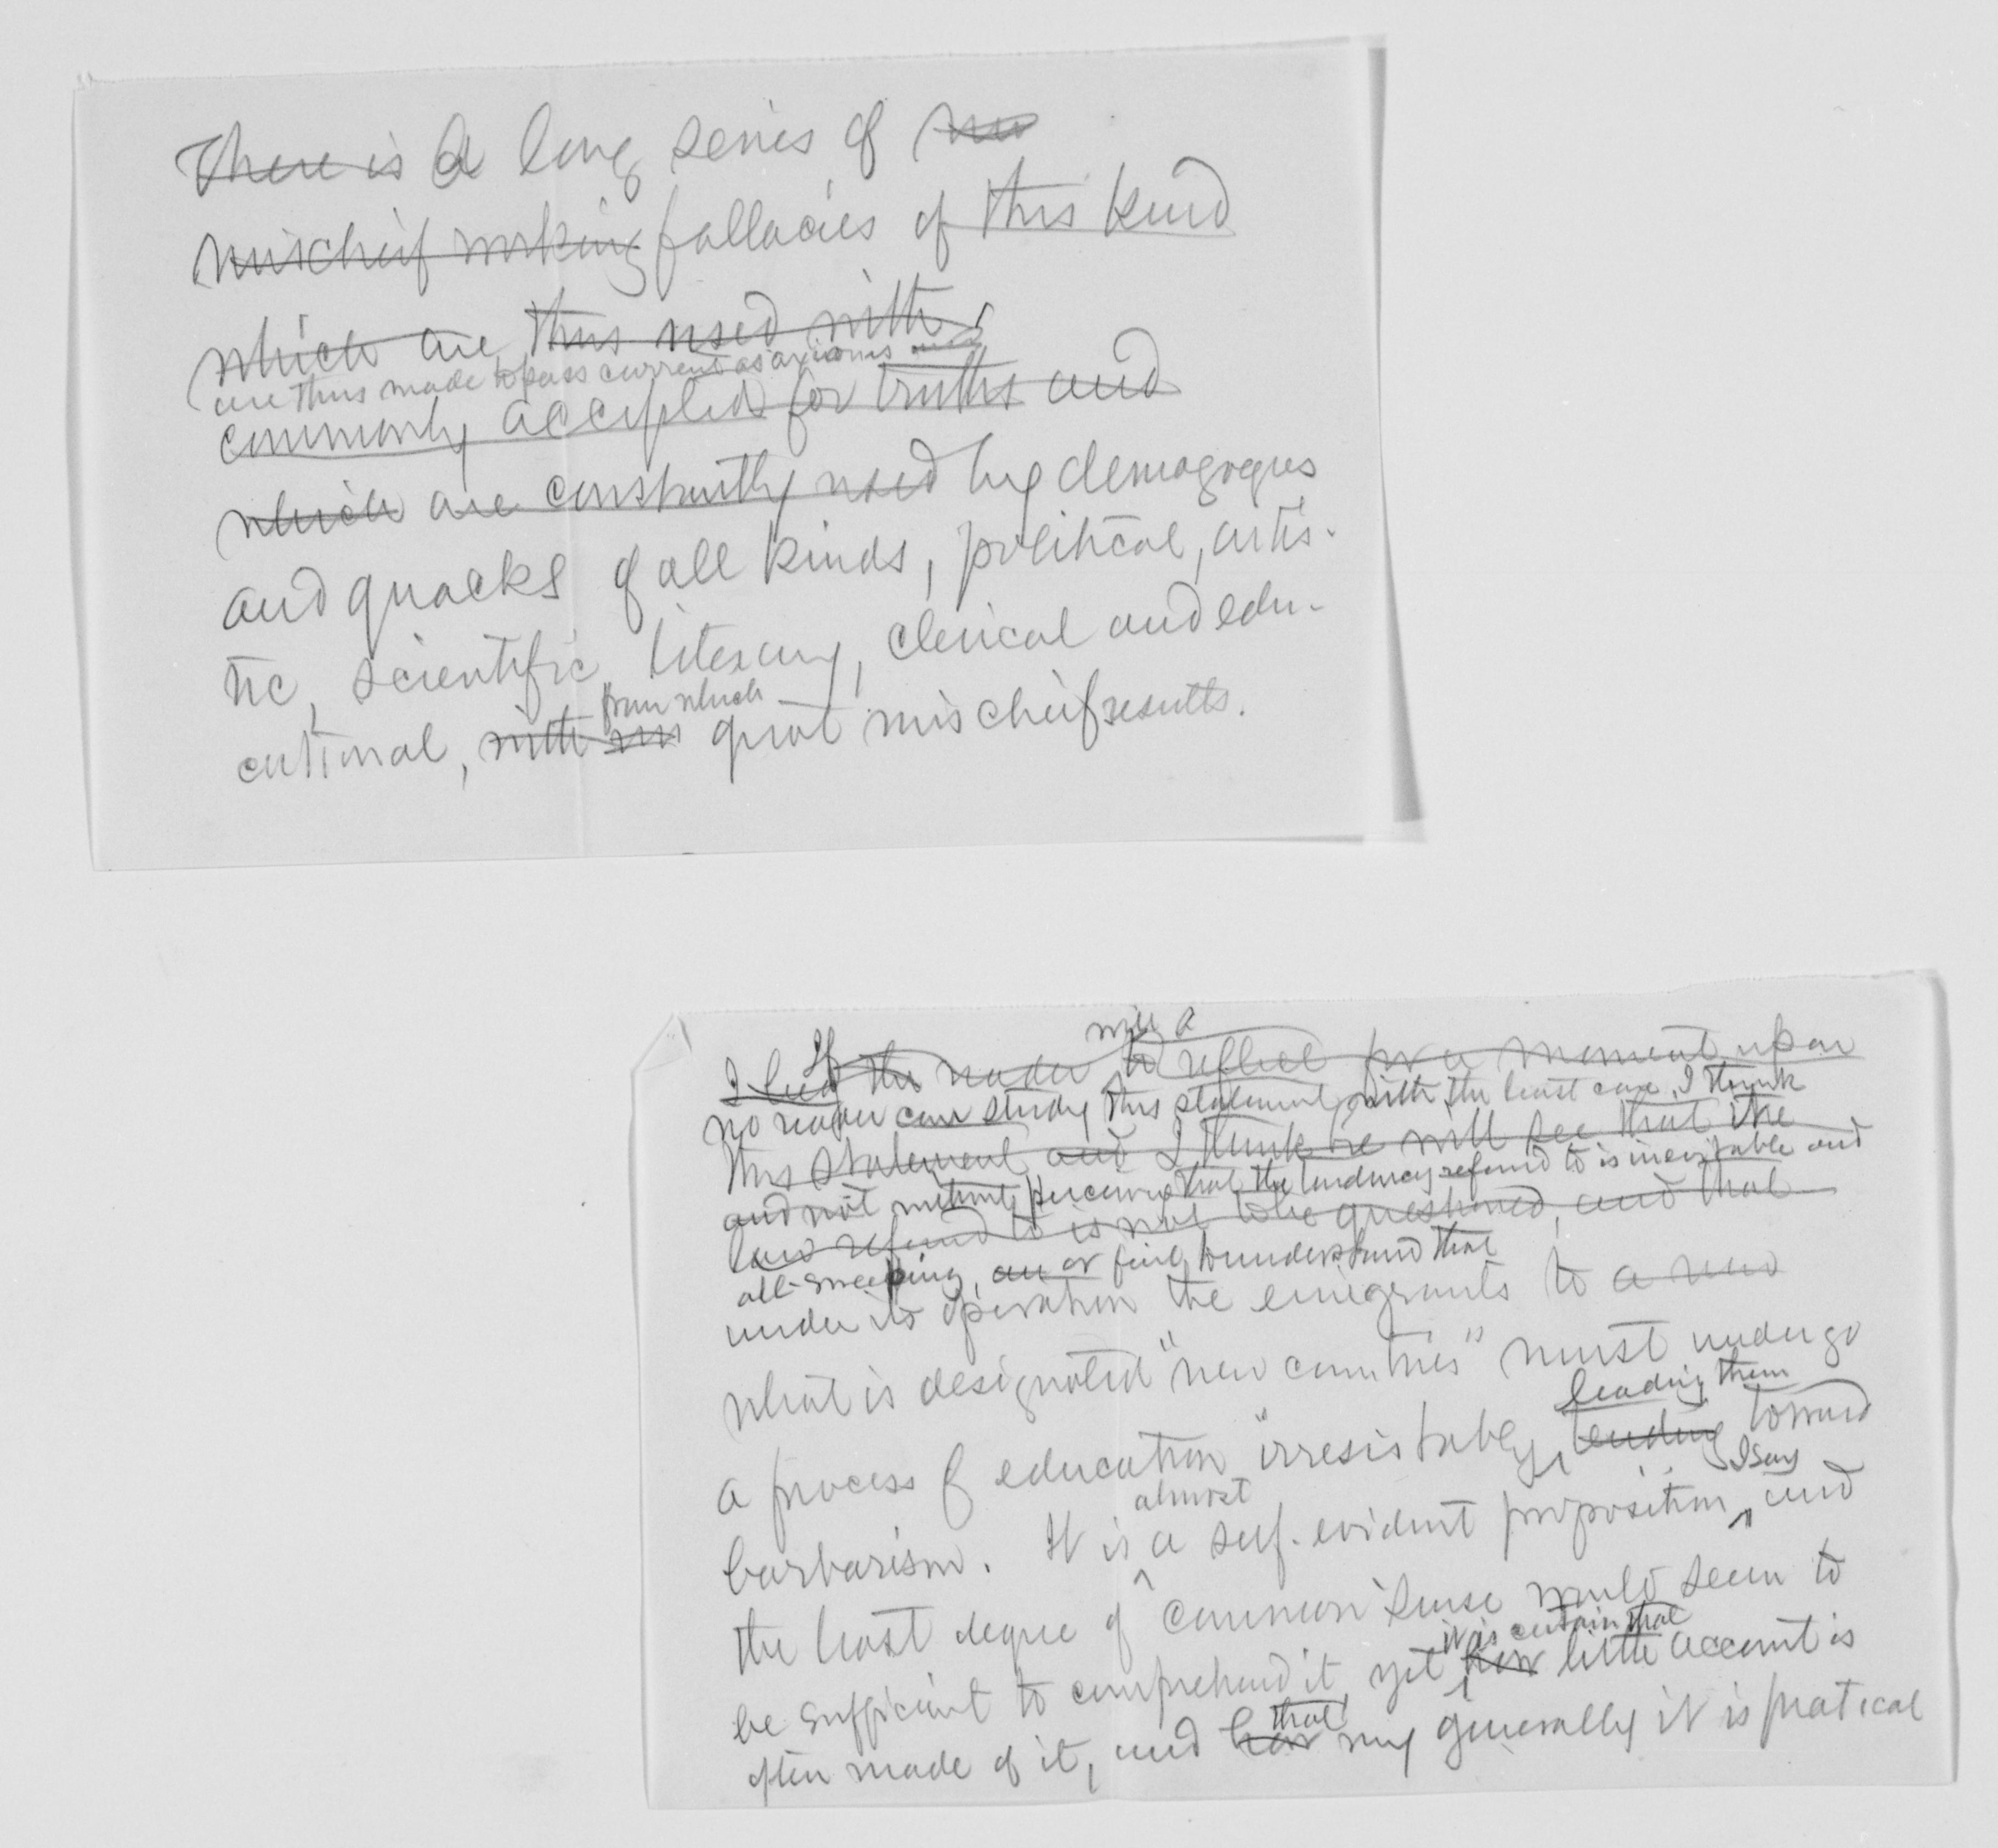 There is A long series of
mischief working fallacies of this kind
which are thus used with
are thus made to pass current as axioms and
commonly accepted for truths and
which are constantly used by demagogues
and quacks of all kinds, political, artis-
tic, scientific, literary, clerical and edu-
from which
cational, with great mischief results.
will a
I If the reader to reflect for a moment upon
no reader can study this statement with the least care, I think
this statement and I think he will see that the
and not perceive that the tendency referred to is inevitable and
law referred to is not to be questioned, and that
all-sweeping, or fail to understand that
under its operation the emigrants to a new
what is designated "new countries" must undergo
leading them
a process of education irresistably tending toward
almost I say
barbarism. It is a self-evident proposition, and
the least degree of common sense would seem to
it is certain that
be sufficient to comprehend it, yet how little account is
that
often made of it, and how generally it is pratical